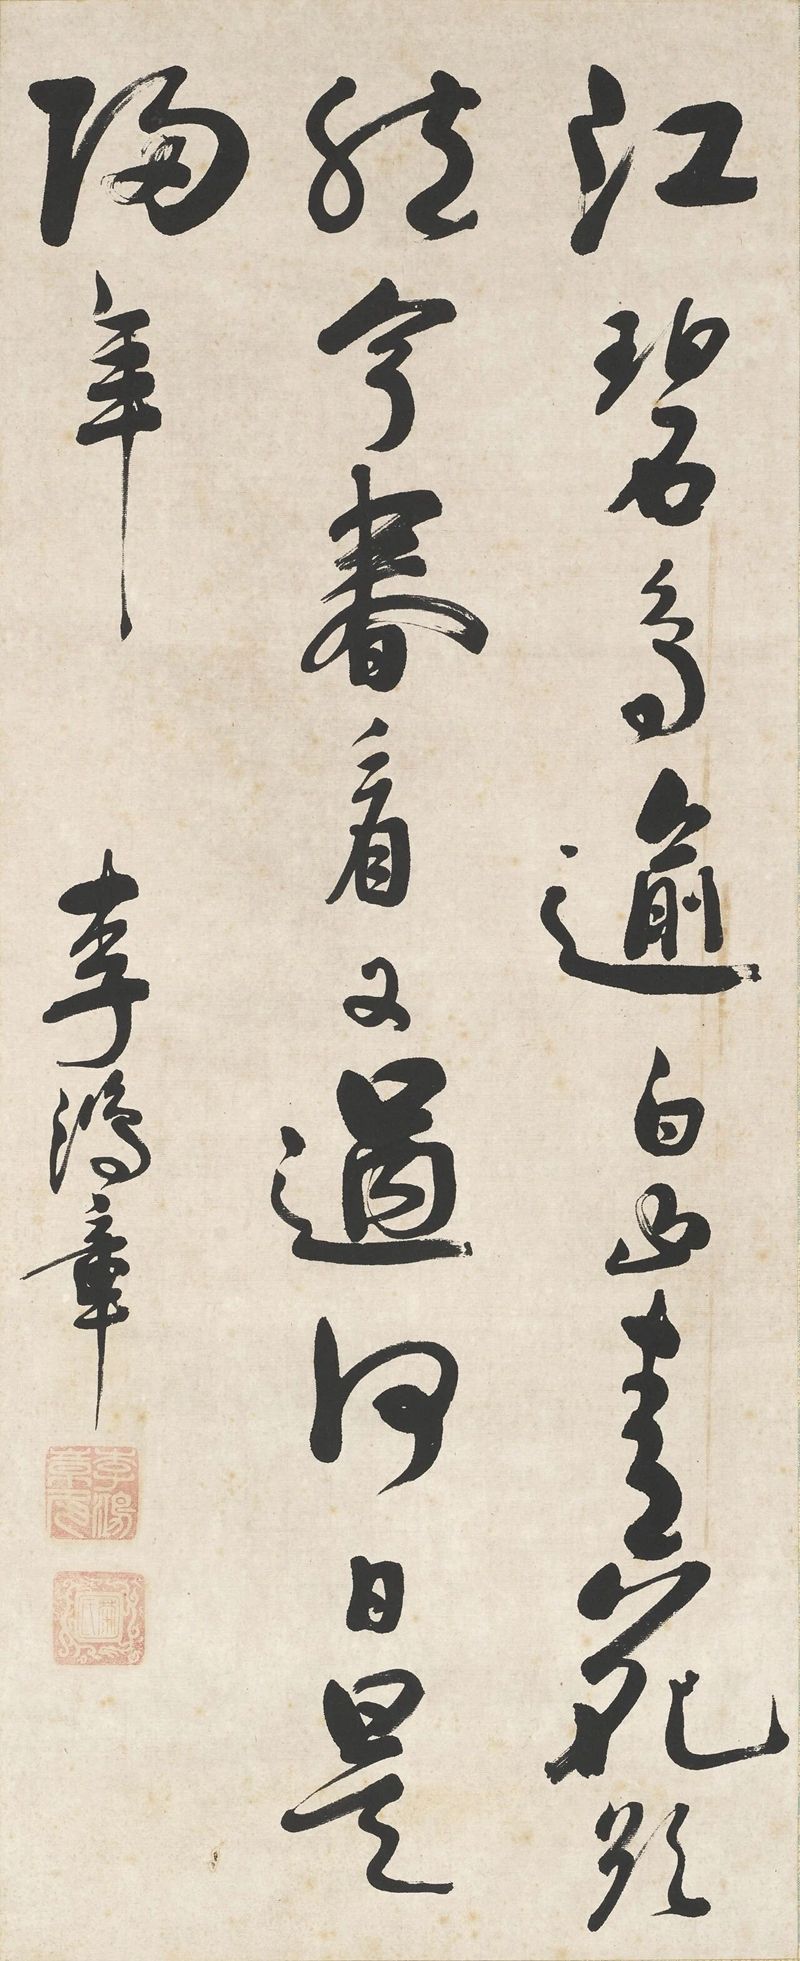 江碧鳥逾白山青花欲
然今春看又過何日是
歸年
李鴻章
李鴻章印